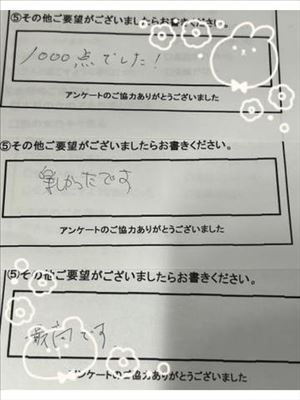 ⑤その他ご要望がございましたらお書きください。
1000点でした!
アンケートのご協力ありがとうございました
⑤その他ご要望がございましたらお書きください。
楽しかったです
アンケートのご協力ありがとうございました
⑤その他ご要望がございましたらお書きください。
最高です
アンケートのご協力ありがとうございました